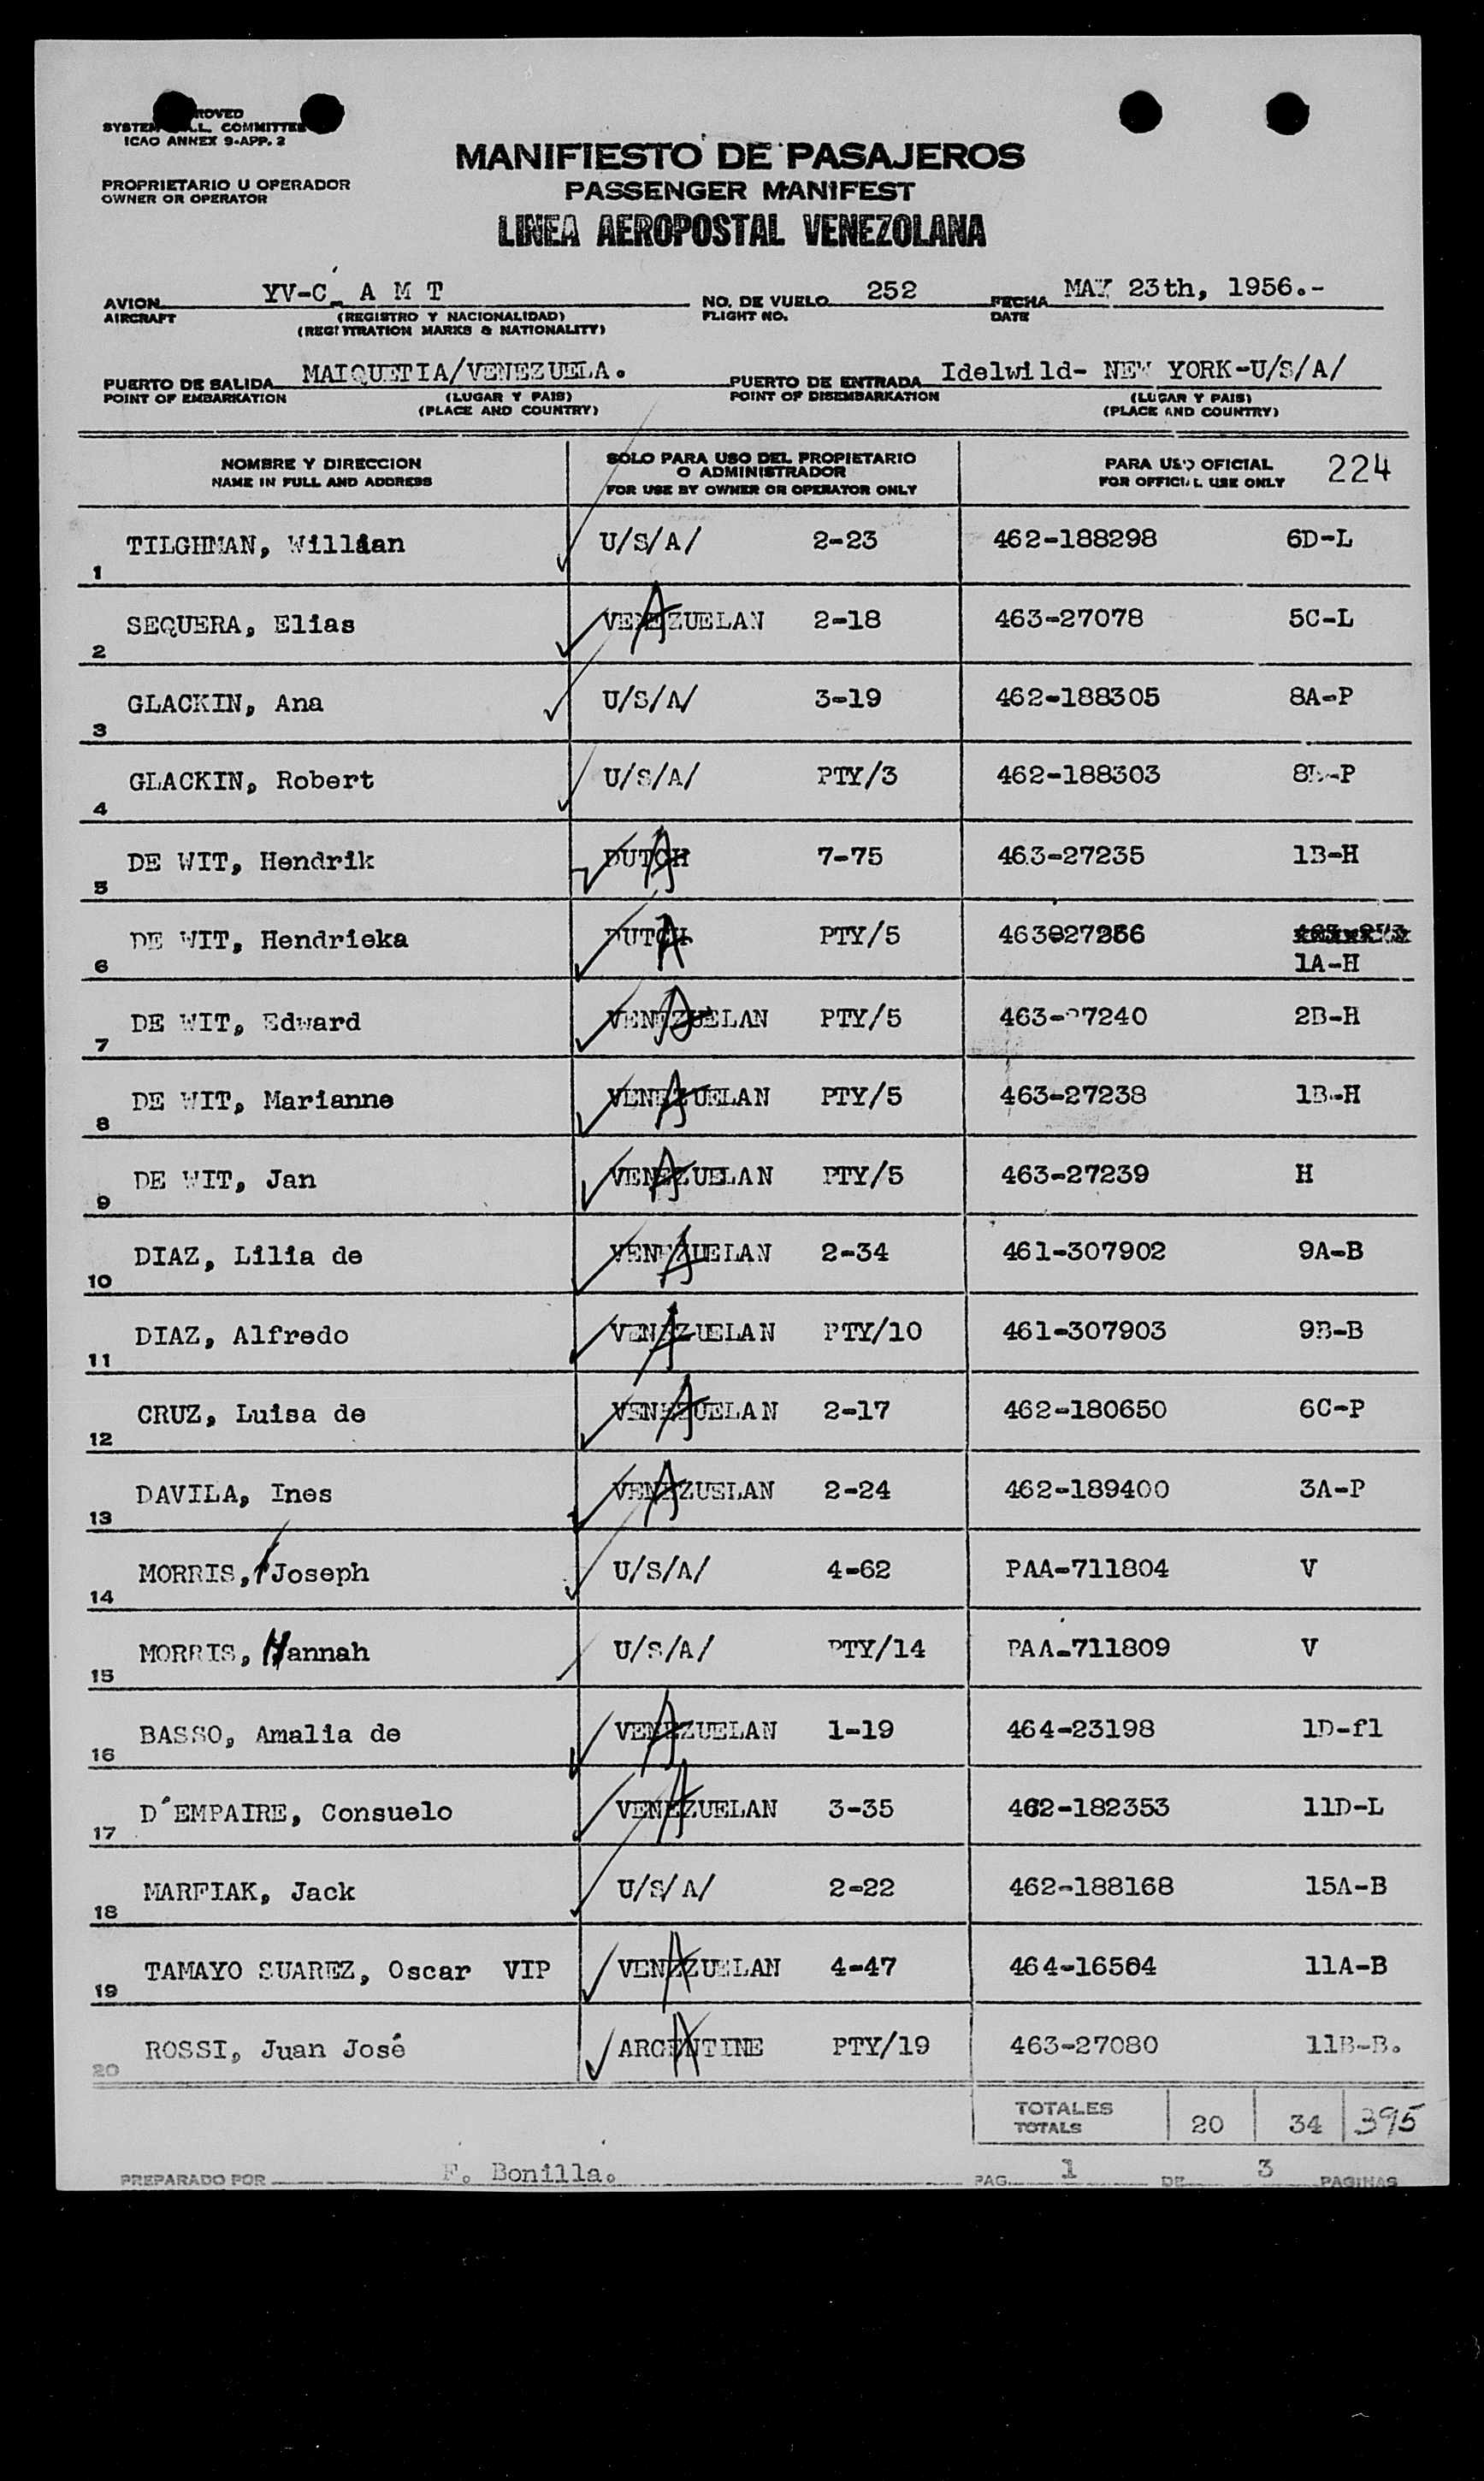 SYSTEM COMMITTEE
ICAO ANNEX 9-APP. 2
PROPRIETARIO U OPERADOR
OWNER OR OPERATOR
MANIFIESTO DE PASAJEROS
PASSENGER MANIFEST
LINEA AEROPOSTAL VENEZOLANA
AVION YV-C- A M T NO. DE VUELO 252 FECHA MAY 23th, 1956.-
AIRCRAFT (REGISTRO Y NACIONALIDAD) FLIGHT NO. DATE
(REGISTRATION MARKS & NATIONALITY)
PUERTO DE SALIDA MAIQUETIA/VENEZUELA. PUERTO DE ENTRADA Idelwild- NEW YORK-U/S/A/
POINT OF EMBARKATION (LUGAR Y PAIS) POINT OF DISEMBARKATION (LUGAR Y PAIS)
(PLACE AND COUNTRY) (PLACE AND COUNTRY)
NOMBRE Y DIRECCION SOLO PARA USO DEL PROPIETARIO PARA USO OFICIAL 224
NAME IN FULL AND ADDRESS O ADMINISTRADOR FOR OFFICIAL USE ONLY
FOR USE BY OWNER OR OPERATOR ONLY
1 TILGHMAN, Willian U/S/A/ 2-23 462-188298 6D-L
2 SEQUERA, Elias VENEZUELAN A 2-18 463-27078 5C-L
3 GLACKIN, Ana U/S/A/ 3-19 462-188305 8A-P
4 GLACKIN, Robert U/S/A/ PTY/3 462-188303 8B-P
5 DE WIT, Hendrik DUTCH A 7-75 463-27235 1B-H
6 DE WIT, Hendrieka DUTCH A PTY/5 463-27236
1A-H
7 DE WIT, Edward VENEZUELAN A PTY/5 463-27240 2B-H
8 DE WIT, Marianne VENEZUELAN A PTY/5 463-27238 1B-H
9 DE WIT, Jan VENEZUELAN A PTY/5 463-27239 H
10 DIAZ, Lilia de VENEZUELAN A 2-34 461-307902 9A-B
11 DIAZ, Alfredo VENEZUELAN A PTY/10 461-307903 9B-B
12 CRUZ, Luisa de VENEZUELAN A 2-17 462-180650 6C-P
13 DAVILA, Ines VENEZUELAN A 2-24 462-189400 3A-P
14 MORRIS, Joseph U/S/A/ 4-62 PAA-711804 V
15 MORRIS, Hannah U/S/A/ PTY/14 PAA-711809 V
16 BASSO, Amalia de VENEZUELAN A 1-19 464-23198 1D-fl
17 D´EMPAIRE, Consuelo VENEZUELAN A 3-35 462-182353 11D-L
18 MARFIAK, Jack U/S/A/ 2-22 462-188168 15A-B
19 TAMAYO SUAREZ, Oscar VIP VENEZUELAN A 4-47 464-16504 11A-B
20 ROSSI, Juan José ARGENTINE A PTY/19 463-27080 11B-B.
TOTALES
TOTALS 20 34 395
PREPARADO POR F. Bonilla. PAG. 1 DE 3 PAGINAS